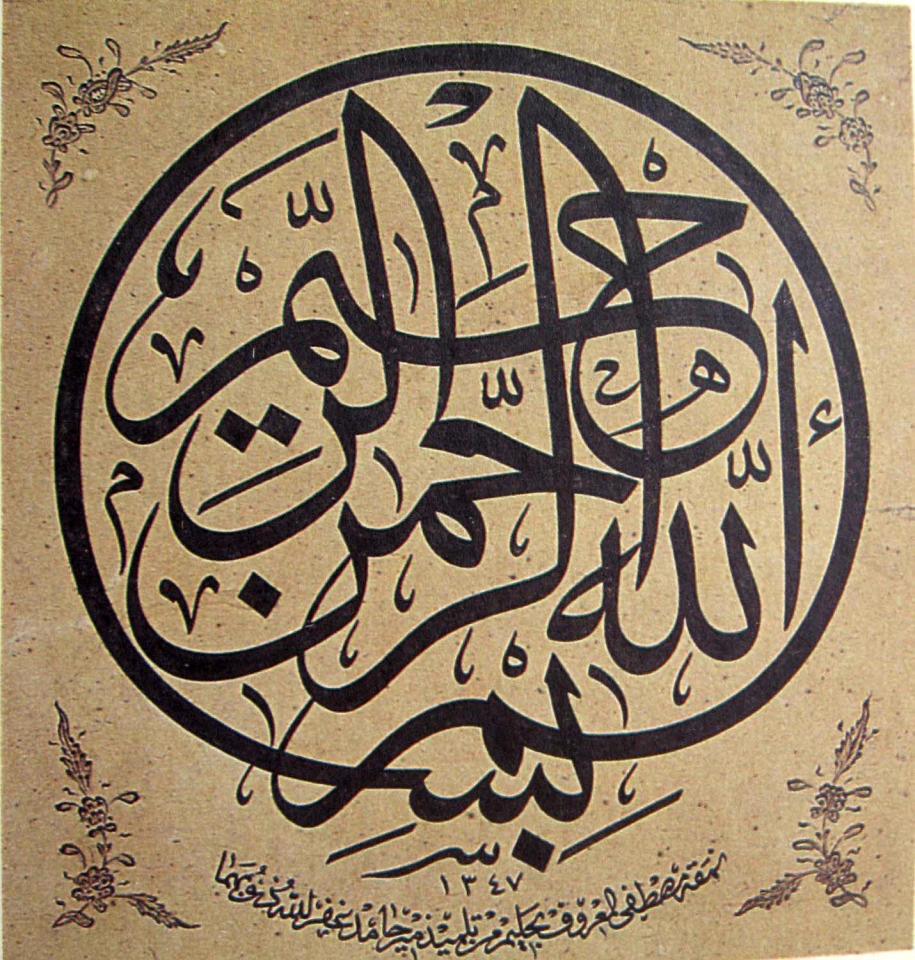 بِسْمِ اللّٰهِ الرَّحْمٰنِ الرَّحِيمِ
١٣٤٧
نمقه مصطفى المعروف بحليم من تلميذ حامد غفر الله ذنوبهما